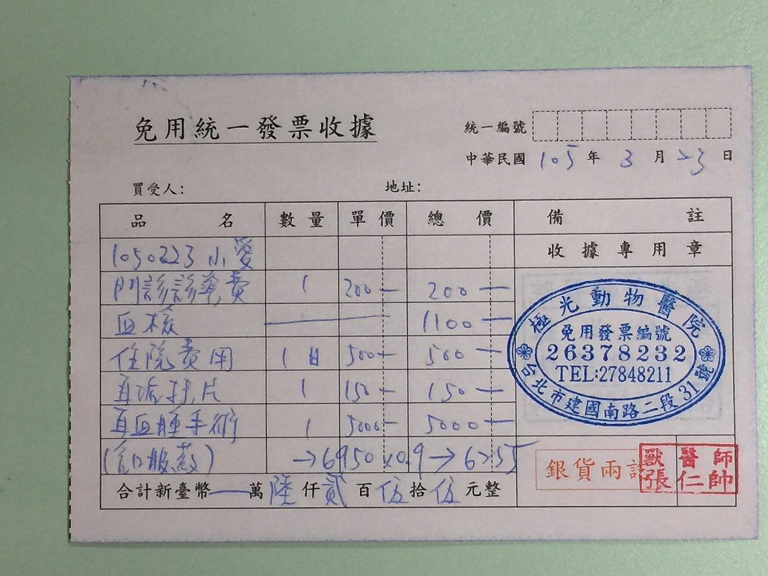 免用統一發票收據
統一編號
中華民國 105 年 3 月 23 日
買受人： 地址：
品名 數量 單價 總價 備註
1050223 小愛 收據專用章
門診診察費 1 200— 200—
血檢 1100—
住院費用 1日 500— 500—
耳 片 1 150— 150—
耳血腫手術 1 5000— 5000—
→6950×0.9→6255
合計新臺幣—萬陸仟貳百伍拾伍元整
極光動物醫院
免用發票編號
26378232
TEL:27848211
台北市建國南路二段31號
銀貨兩訖
獸醫師
張仁帥